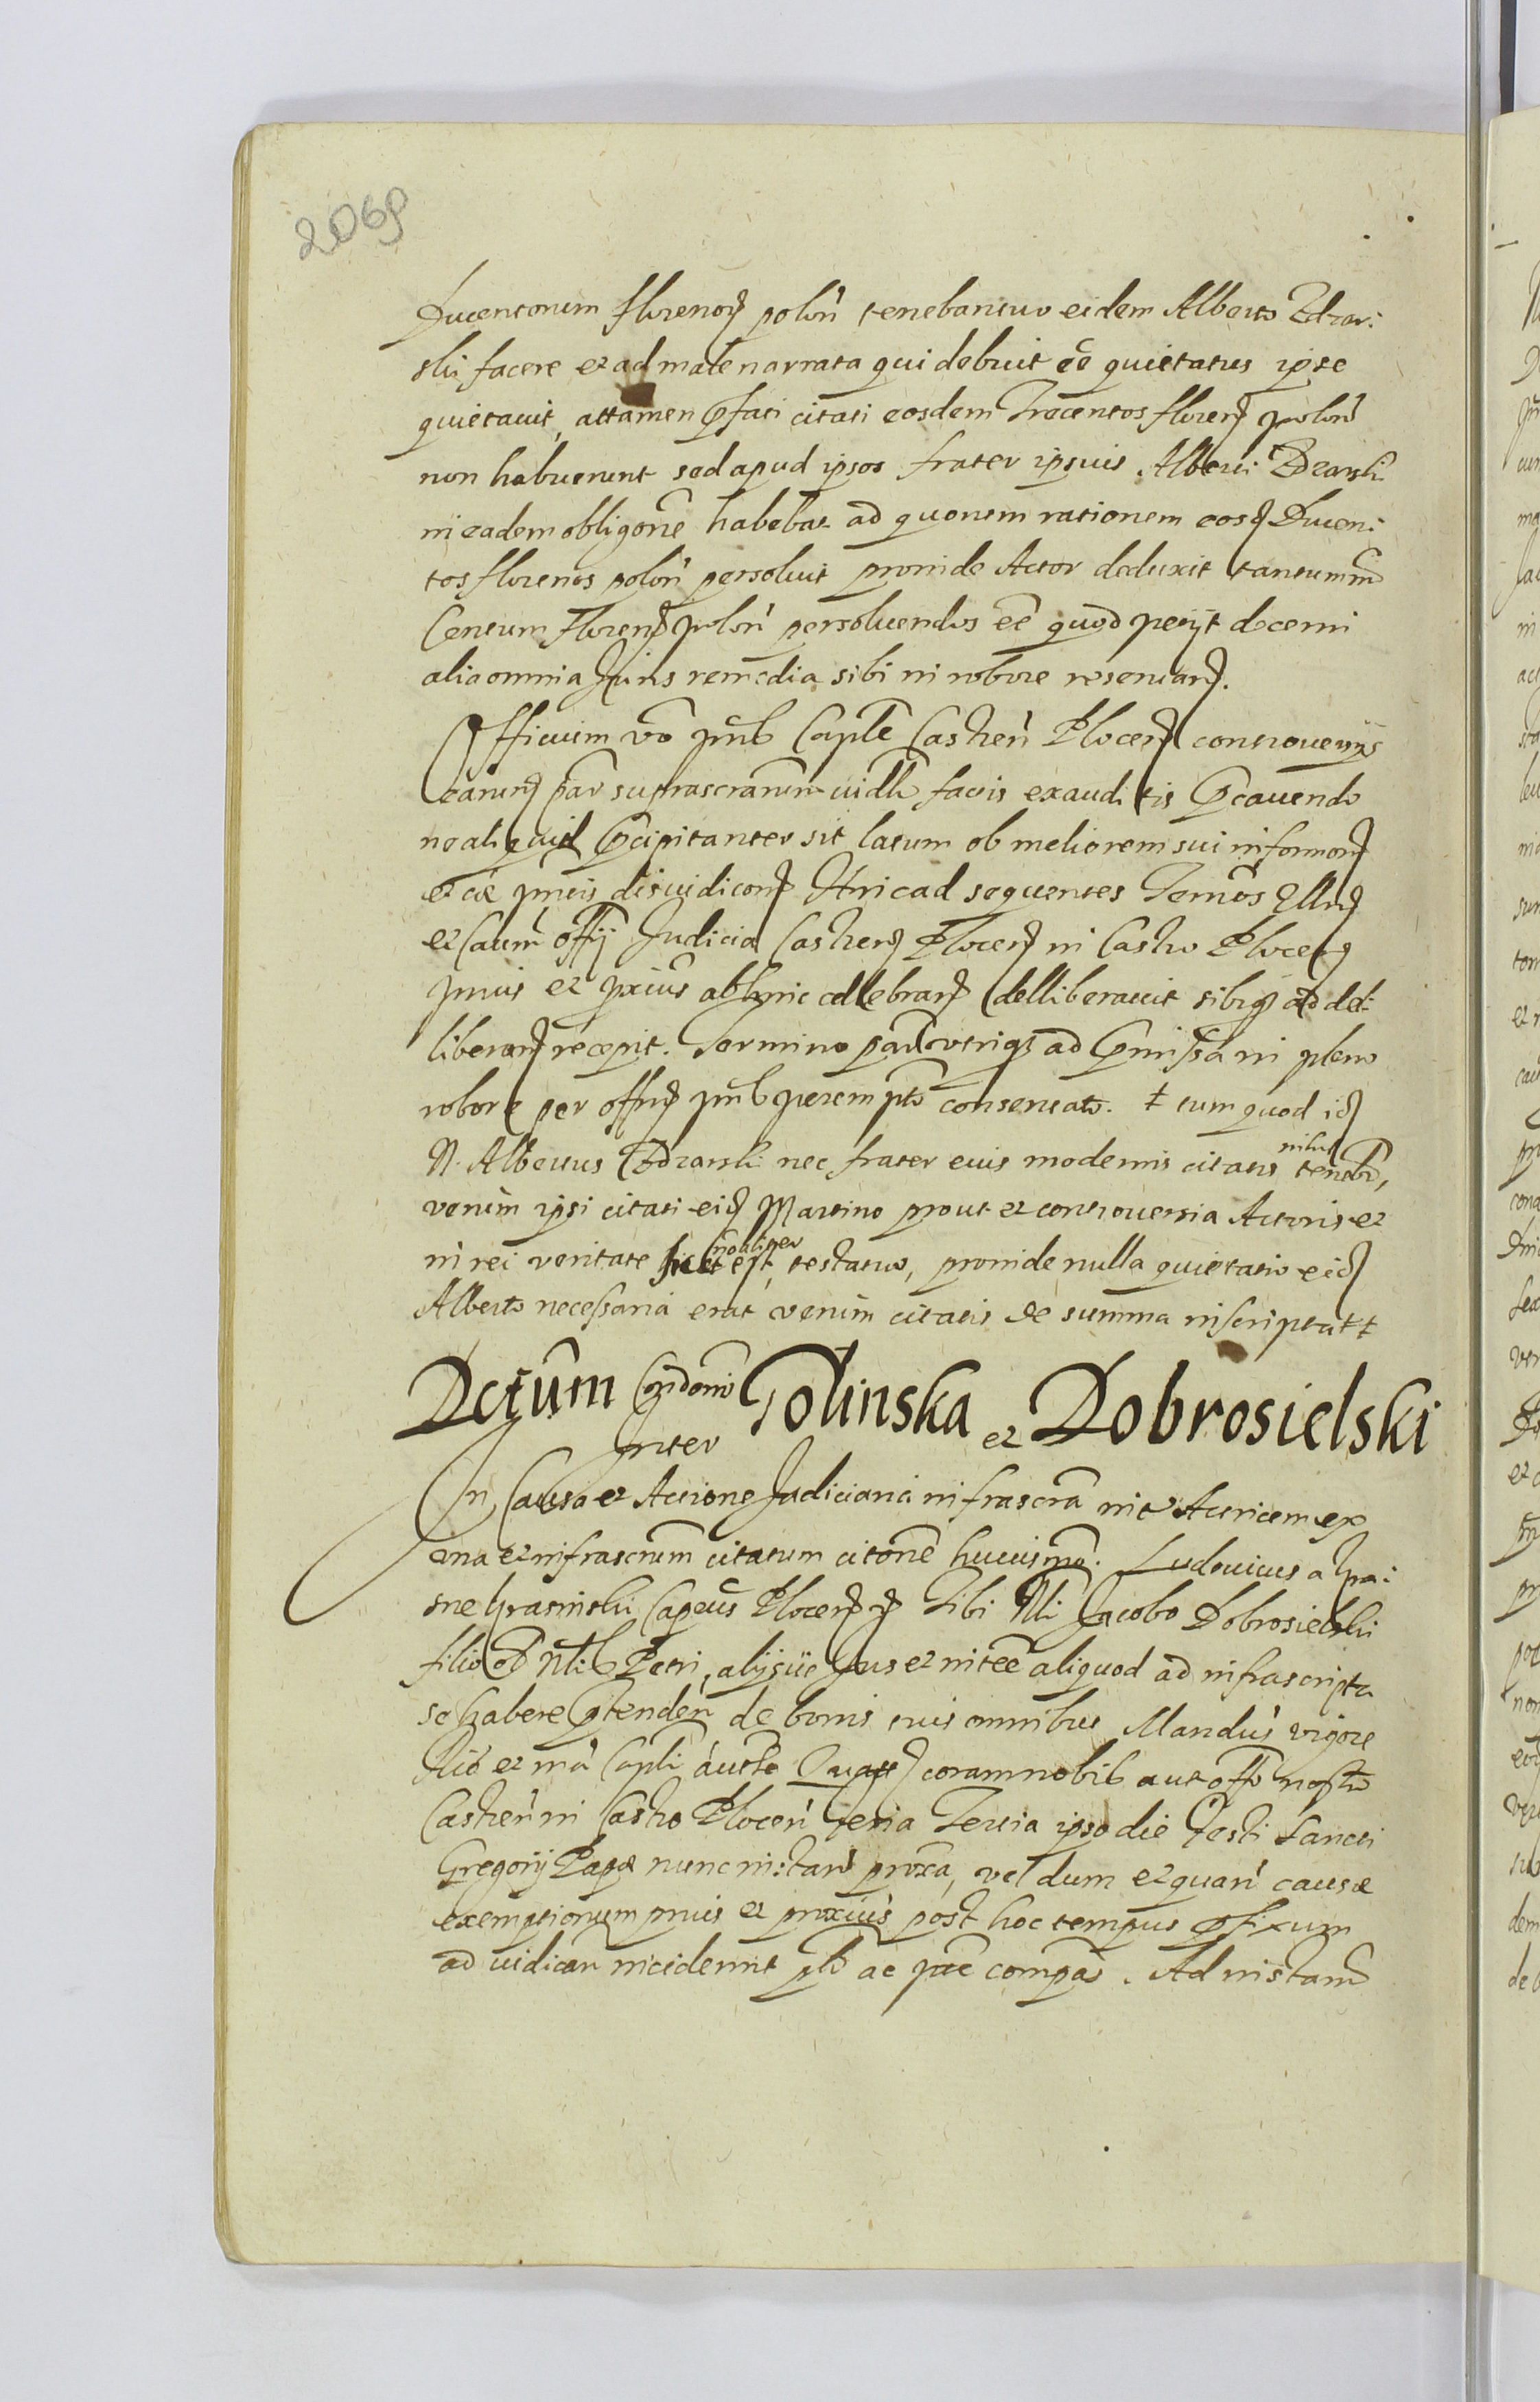 206p
Ducentorum florenoꝝ polon̄ tenebantur eidem Alberto Zdzar:
ski facere et ad male narrata qui debuit eē quietatus ipse
quietavit, attamen p̄fati citati eosdem Trecentos floren̄ polon̄
non habuerunt sed apud ipsos frater ipsius Alberti Zdzarski
in eadem obligōne habebat ad quorum rationem eosd̄ Ducen:
tos florenos polon̄ persoluit proinde Actor deduxit tantumm̄o
Centum Floren̄ polon̄ persoluendos eē quod petijt decerni
alia omnia Juris remedia sibi in robore reseruari.
Officium vō pn̄s Capłe Castren̄ Plocen̄ controuersijs
earund̄ par suprascrarum vidłt factis exauditis p̄cauendo
ne aliquid p̄cipitanter sit latum ob meliorem sui informōn̄
et cāe pn̄tis disiudicōn̄ ad sequentes Termōs
et Caurm̄ offij Judicia Castren̄ Plocen̄ in Castro Plocen̄
prius et pxīus abhinc cellebran̄ delliberauit sibiqȝ ad deł:
liberan̄ recepit. Termino par̄ utriqȝ ad p̄missa in pleno
robore per offm̄ pn̄s perempto conseruato. ŧ tum quod id̄
N. Albertus Zdzarski nec frater eius modernis citatis nihil teneb̄r,
verum ipsi citati eid̄ Martino prout et controuersia Actoris et
in rei veritate noaliter est, testatur, proinde nulla quietatio eid̄
Alberto necessaria erat verum citatis de summa inscripta ŧŧ
Dctum Condōnis Inter Tolinska et Dobrosielski
In Causa et Actione Judiciaria infrascrā int̄ Actricem ex
una et infrascrum citatum citōne huiusmōi. Ludouicus a Kra:
sne Krasinski Capeus Plocen̄ Tibi Nłi Jacobo Dobrosielski
filio ol̄ Nłis Petri, alijsue Jus et intēe aliquod ad infrascripta
se habere p̄tenden̄ de bonis tuis omnibus Mandūs vigore
et mā Capłi autte Quatt̄ coram nobis aut offo nostro
Castren̄ in Castro Plocen̄ feria Tertia ipso die Festi Sancti
Gregorij Papæ nunc instan̄ proxā, vel dum et quan̄ causæ
exemptionum prius et proxius post hoc tempus p̄fixum
ad iudican̄ inciderint pło ac p̄te compās. Ad instan̄